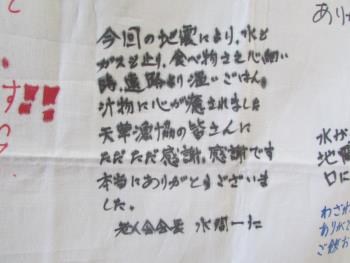 今回の地震により、水と
ガスも止り、食べ物さえ心細い
時、遠路より温いごはん。
汁物に心が癒されました
天草漁協の皆さんに
ただただ感謝、感謝です
本当にありがとうございま
した。
老人会会長 水間一
ありが
水が
地震
口に
わざわ
ありがと
ご飯お
す!!